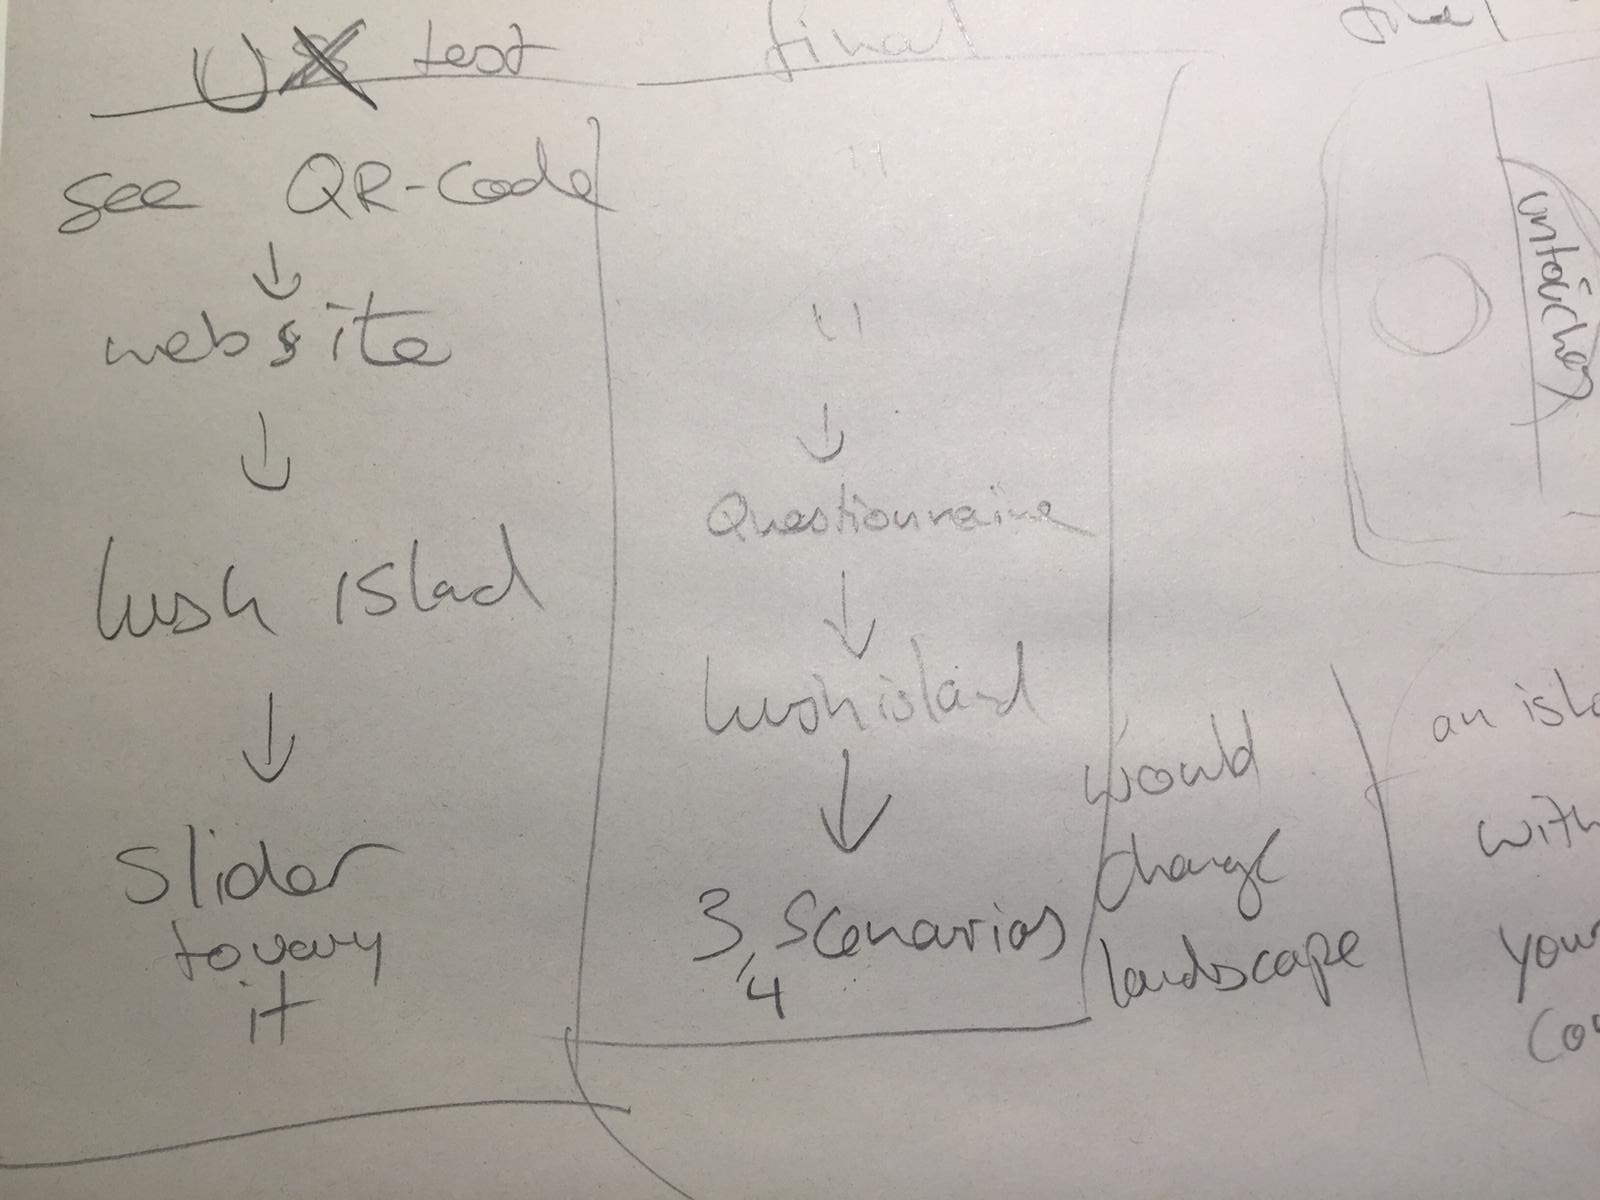 UX test
see QR-Code
↓
website
↓
lush islad
↓
Slider
to vary
it
final
"
"
↓
Questionnaire
↓
lush island
↓
3, Scenarios
4
would
change
landscape
final
an isl
with
your